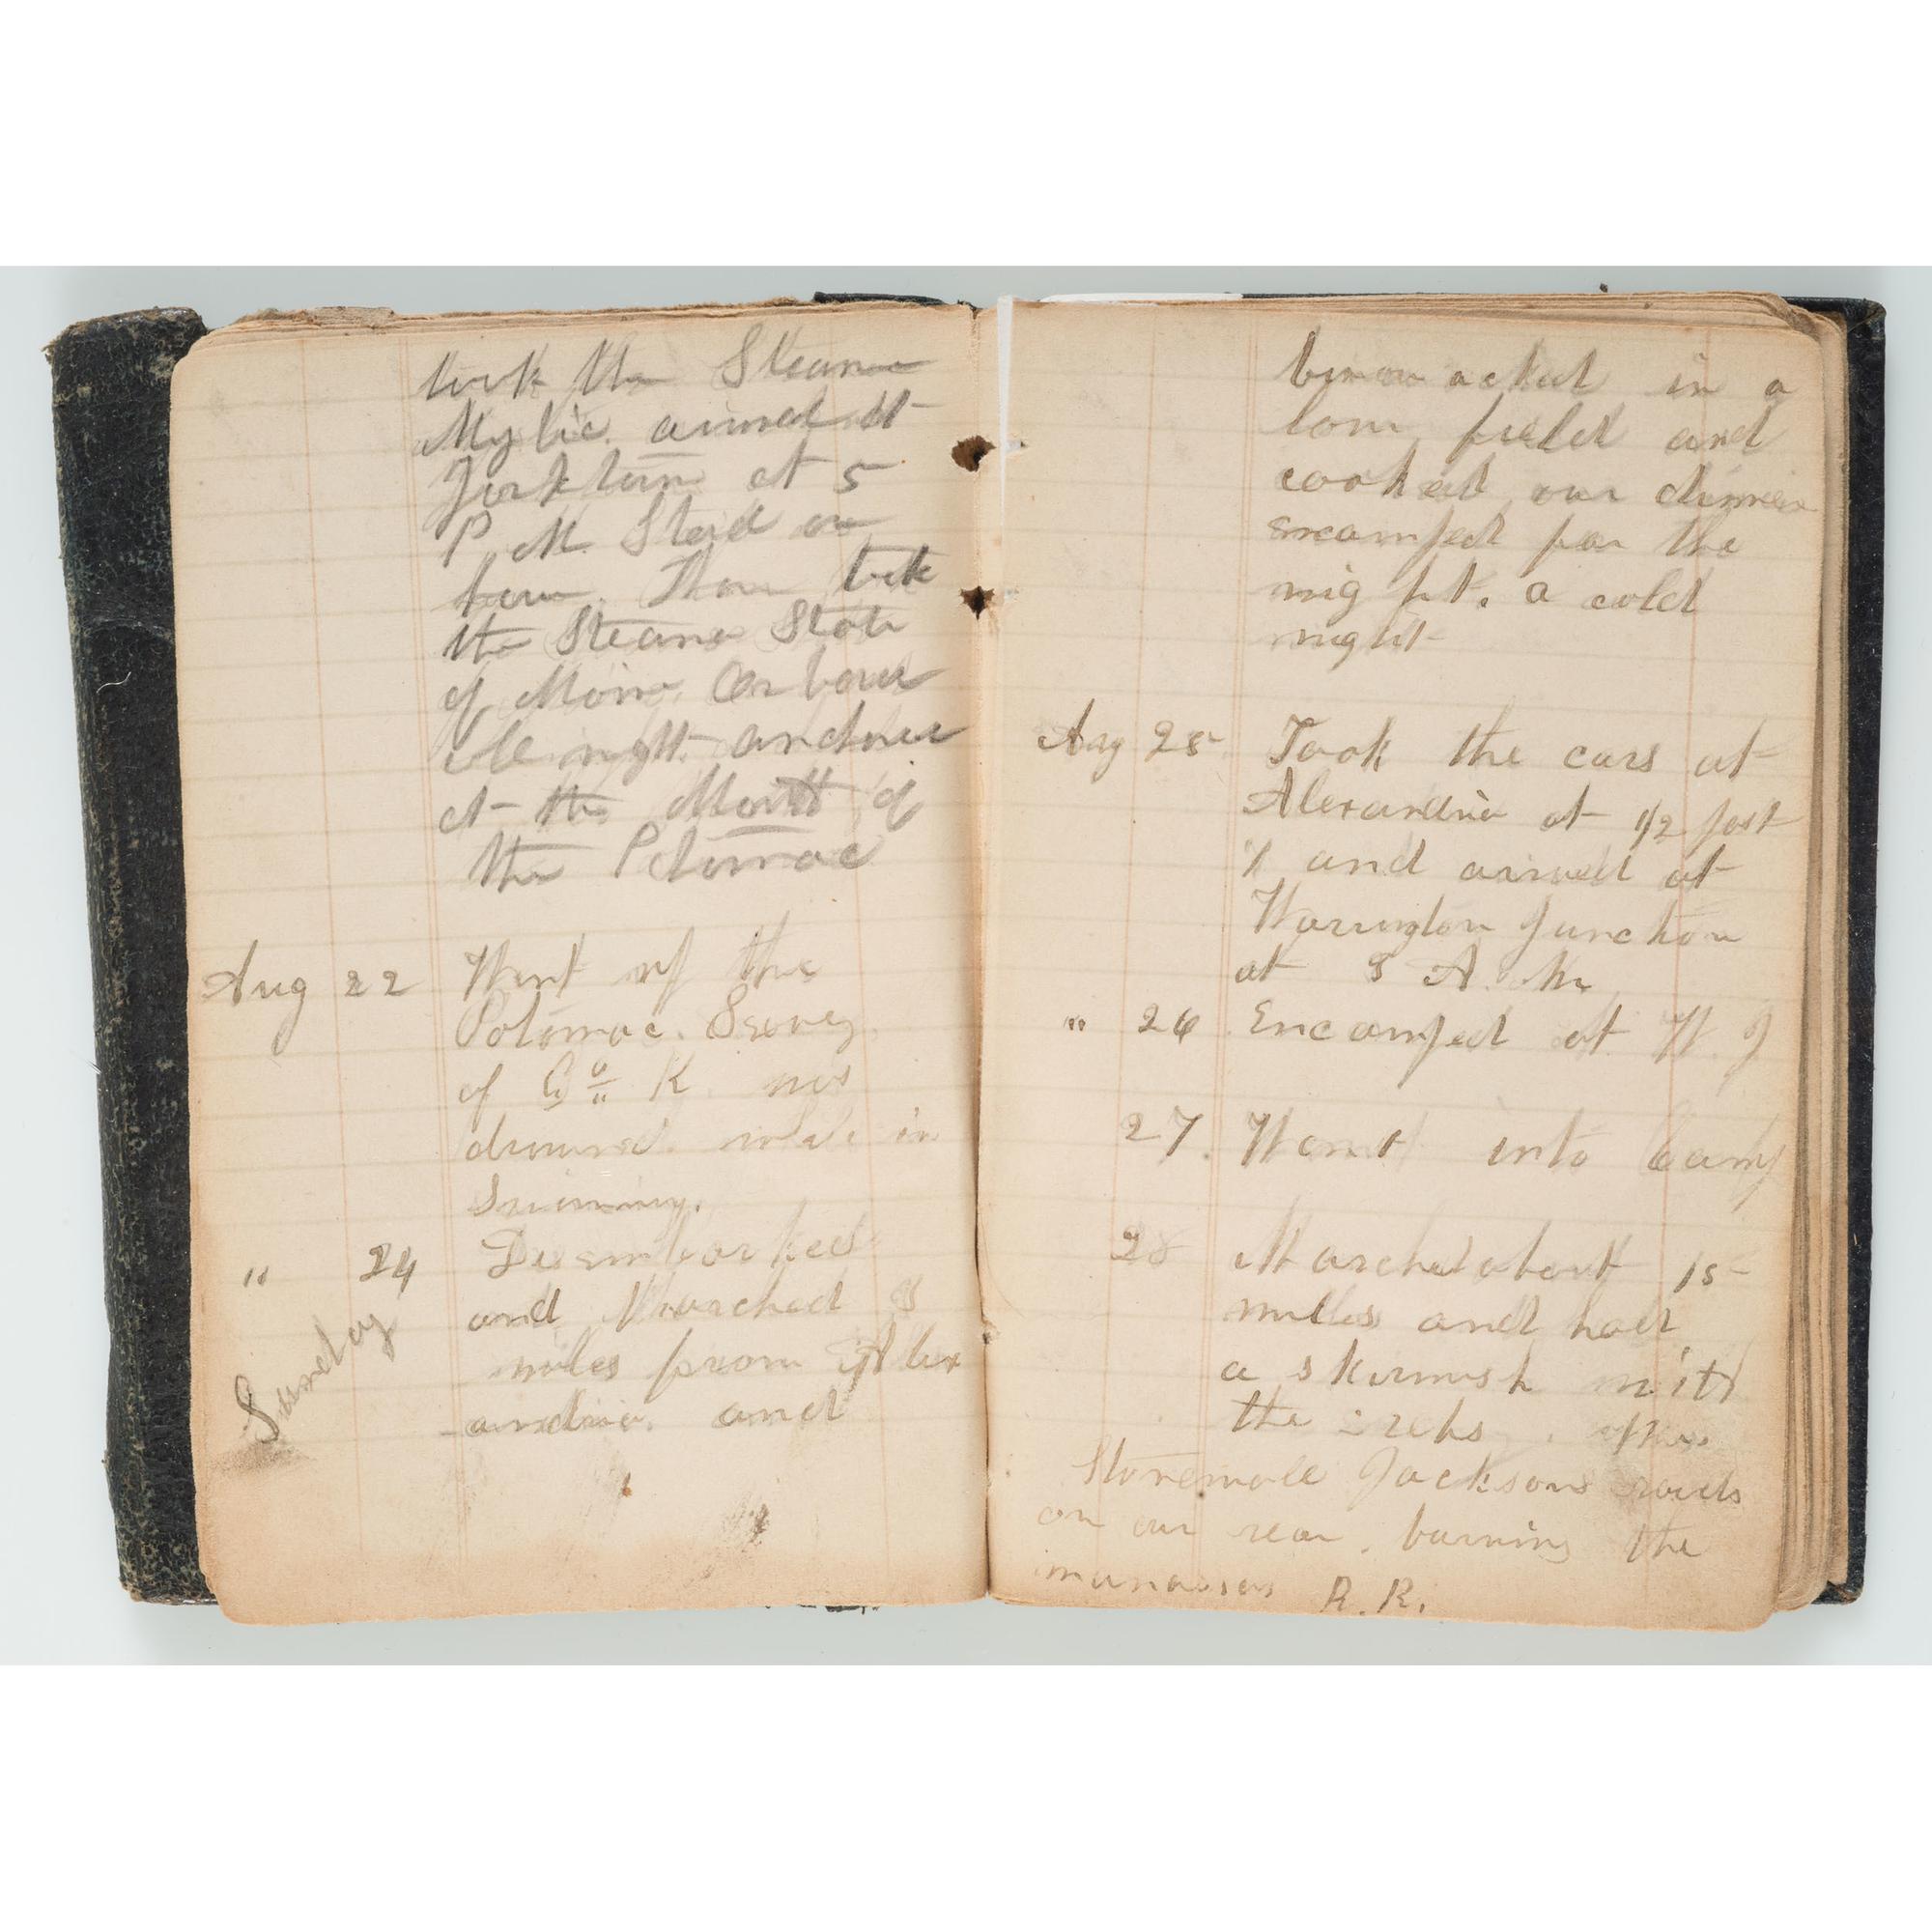 took the Steamer
Mystic. arived at
Yorktown at 5
P. M. Staid on
Then took
the Steamer State
of Maine. On board
all night. anchored
at the Mouth of
the Potomac
Aug 22 Went up the
Potomac.
of Co K. was
drowned while in
Swiming.
" 24 Disembarked
Sunday
and Marched 8
miles from Alex
andria. and
bivouacked in a
field and
cooked our dinner
encamped for the
night. a cold
night
Aug 25 Took the cars at
Alexandria at 1/2 past
1 and arived at
Warrington Junction
at 8 A. M.
" 26 Encamped at W. J
27. Went into Camp
28 Marched about 15
milles and had
a skirmish with
the rebs.
Stonewale Jacksons
on our rear. burning the
manassas R. R.